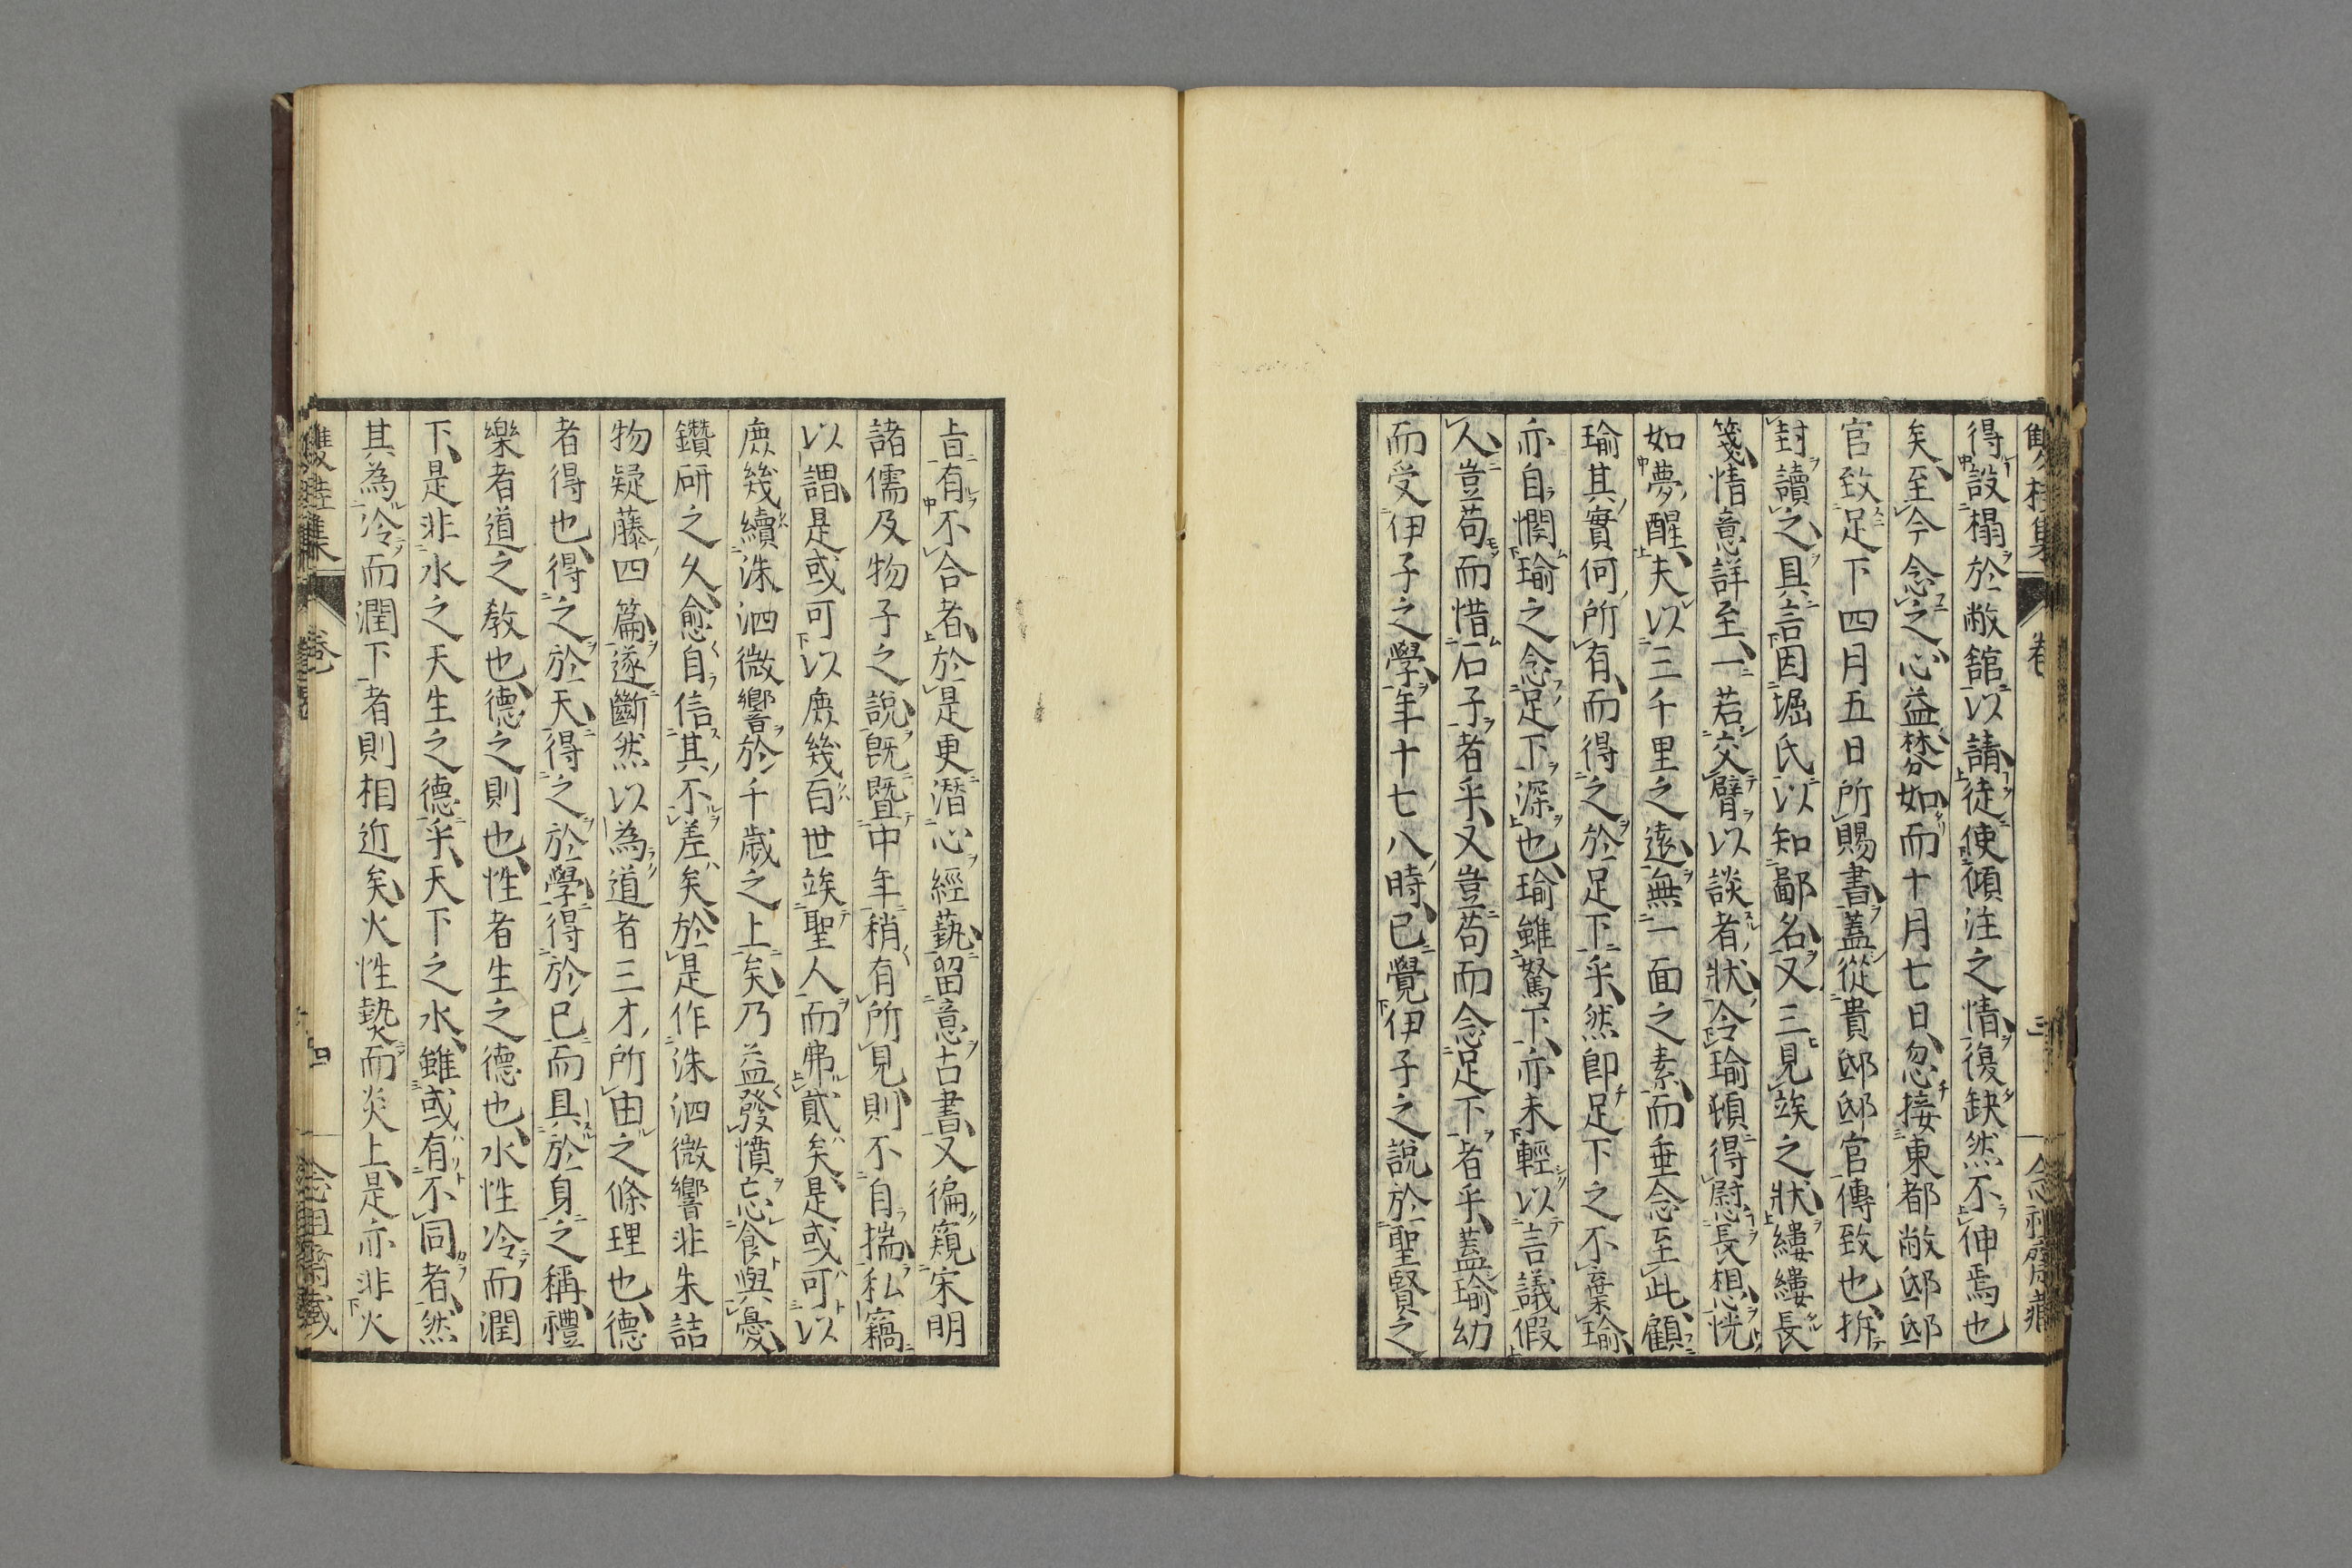 雙桂集 卷 三 念祖齋藏
得設榻於敝舘以請徒使傾注之情復缺然不伸焉也
矣至今念之心益棼如而十月七日忽接東都敝邸邸
官致足下四月五日所賜書蓋從貴邸邸官傳致也拆
封讀之具言因堀氏以知鄙名又三見竢之狀縷縷長
箋情意詳至一若交臂以談者狀令瑜頓得慰長想恍
如夢醒夫以三千里之遠無一面之素而垂念至此顧
瑜其實何所有而得之於足下乎然卽足下之不棄瑜
亦自憫瑜之念足下深也瑜雖駑下亦未輕以言議假
人豈苟而惜石子者乎又豈苟而念足下者乎蓋瑜幼
而受伊子之學年十七八時已覺伊子之說於聖賢之
旨有不合者於是更潛心經藝留意古書又徧窺宋明
諸儒及物子之說旣暨中年稍有所見則不自揣私竊
以謂是或可以庶幾百世竢聖人而弗貳矣是或可以
庶幾續洙泗微響於千歲之上矣乃益發憤忘食與憂
鑽研之久愈自信其不差矣於是作洙泗微響非朱詰
物疑藤四篇遂斷然以為道者三才所由之條理也德
者得也得之於天得之於學得於己而具於身之稱禮
樂者道之教也德之則也性者生之德也水性冷而潤
下是非水之天生之德乎天下之水雖或有不同者然
其為冷而潤下者則相近矣火性𤍠而炎上是亦非火
雙桂集 卷 四 念祖齋藏